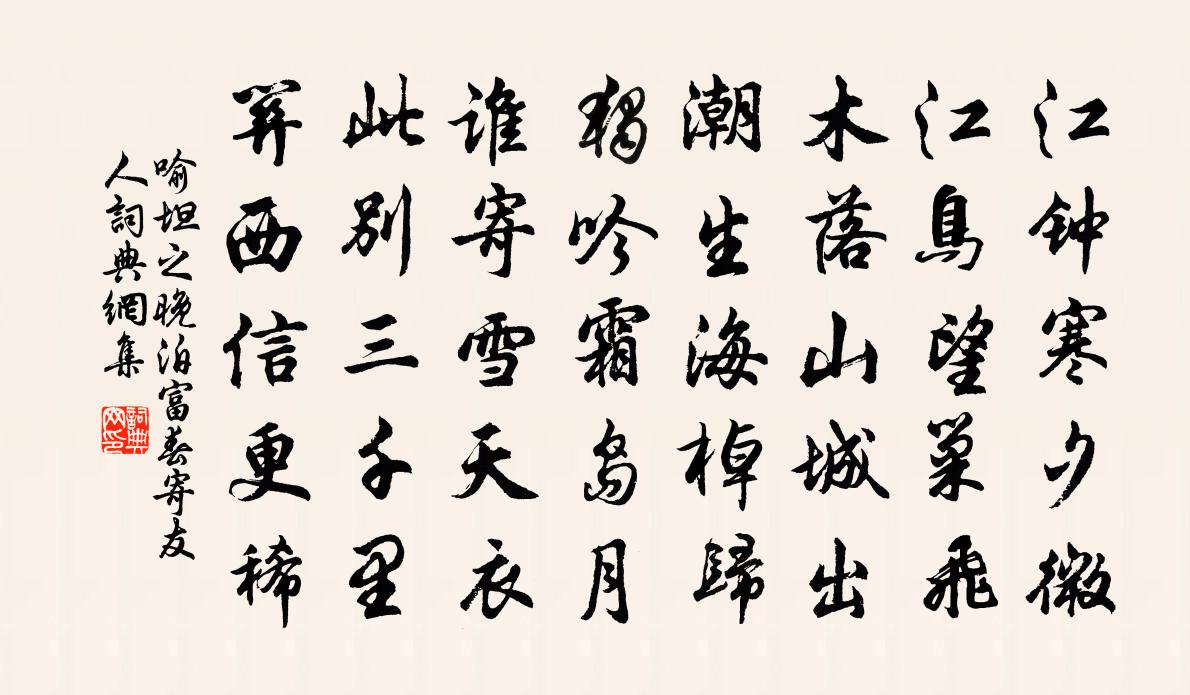 江钟寒夕微
江鳥望巢飛
木落山城出
潮生海棹歸
獨吟霜島月
谁寄雪天衣
此别三千里
關西信更稀
喻坦之晚泊富春寄友
人詞典網集
詞典网印